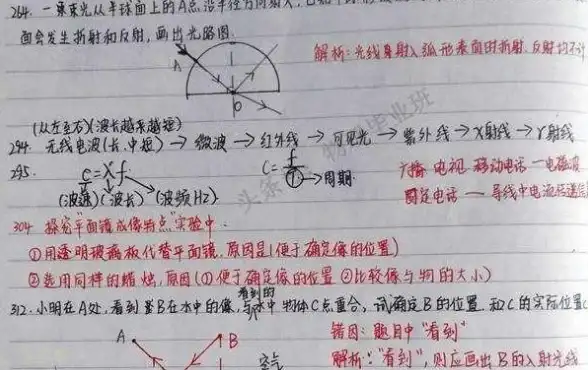 264. 一束束光从半球面上的A点沿半径方向射入,
面会发生折射和反射,画出光路图.
解析:光线身射入弧形表面时折射.反射均不计
A
O
(从左至右)(波长越来越短)
294. 无线电波(长.中短)→微波→红外线→可见光→紫外线→X射线→γ射线
295. c=λf
(波速)(波长)(波频Hz)
→周期
广播 电视 移动电话—电磁波
固定电话 — 导线中电流传递
304 探究"平面镜成像特点"实验中.
①用透明玻璃板代替平面镜.原因是(便于确定像的位置)
②选用同样的蜡烛,原因(①便于确定像的位置 ②比较像与物的大小)
看到的
312. 小明在A处,看到鱼B在水中的像,与水中物体C点重合,试确定B的位置.和C的实际位置
错因:题目中"看到"
解析:"看到",则应画出B的入射光线
A
B
空气
头条 物 毕业班